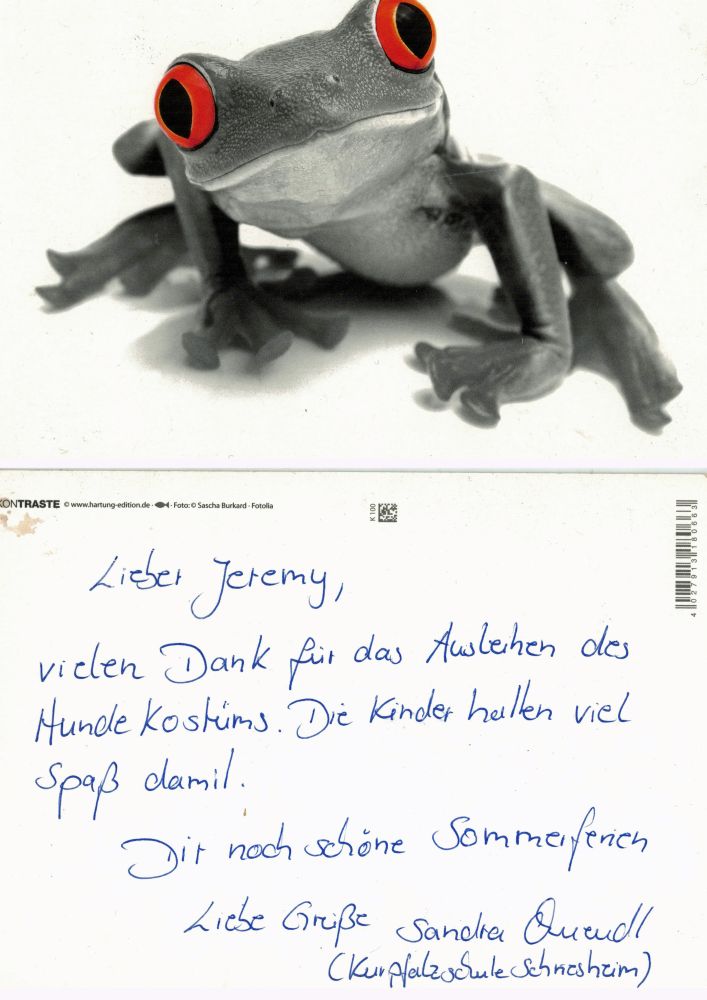 KONTRASTE © www.hartung-edition.de · Foto: © Sascha Burkard · Fotolia
K 100
4 027913 180663
Lieber Jeremy,
vielen Dank für das Ausleihen des
Hundekostüms. Die Kinder hatten viel
Spaß damit.
Dir noch schöne Sommerferien
Liebe Grüße Sandra
(Kurpfalzschule Schriesheim)